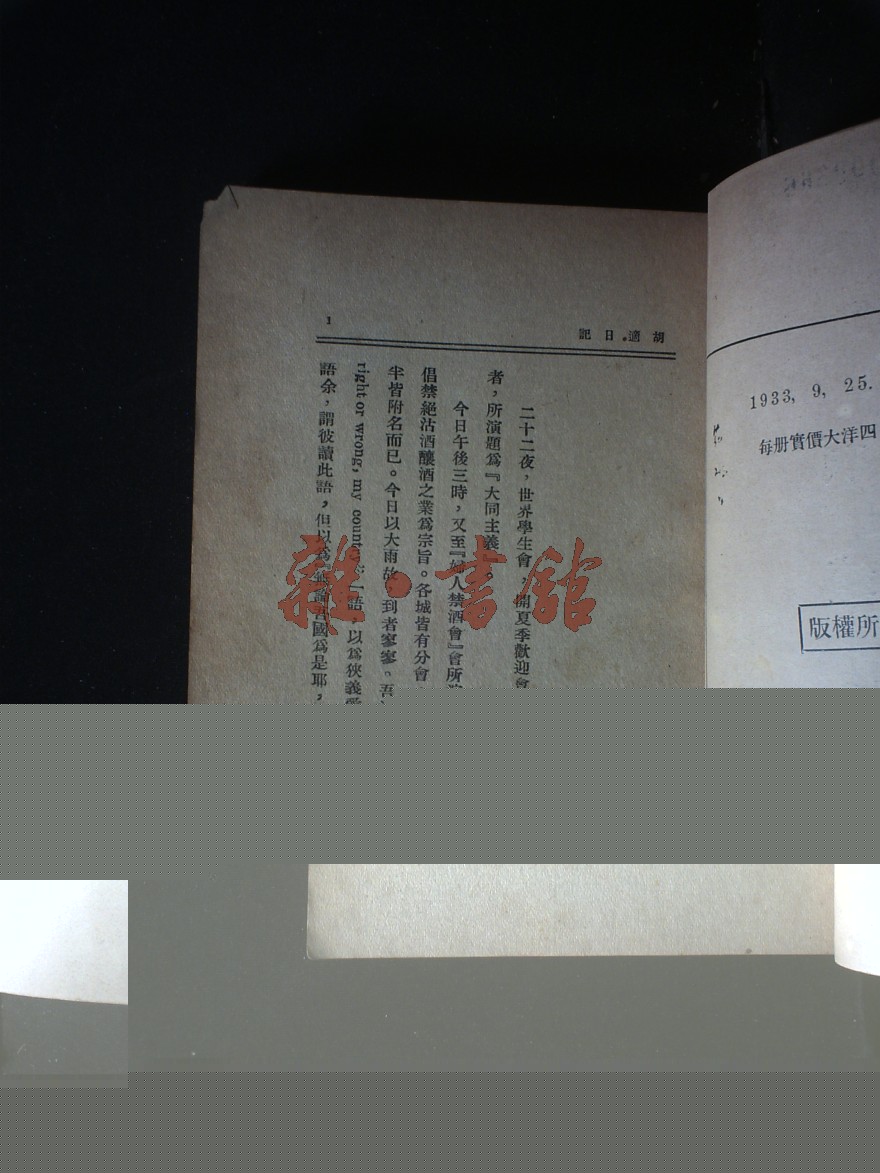 胡適日記
1
二十二夜，世界學生會，開夏季歡迎會
者，所演題爲『大同主義』。
今日午後三時，又至『婦人禁酒會』會所
倡禁絕沽酒釀酒之業爲宗旨。各城皆有分會
半皆附名而已。今日以大雨故，到者寥寥。吾
right or wrong, my country”一語，以爲狹義
語余，謂彼讀此語，但以爲『無論吾國爲是耶，
1933, 9, 25.
每册實價大洋四
版權所
雜·書館